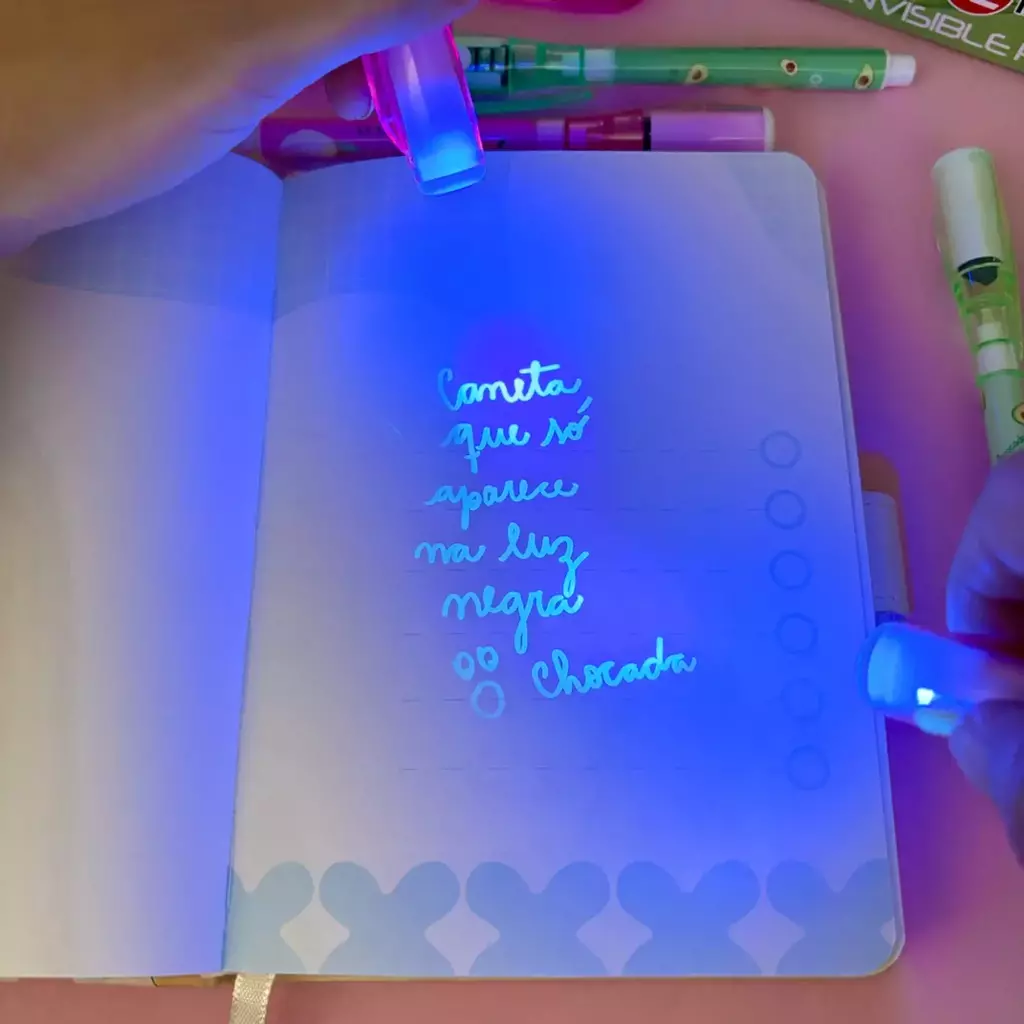 INVISIBLE
Caneta
que só
aparece
na luz
negra
Chocada